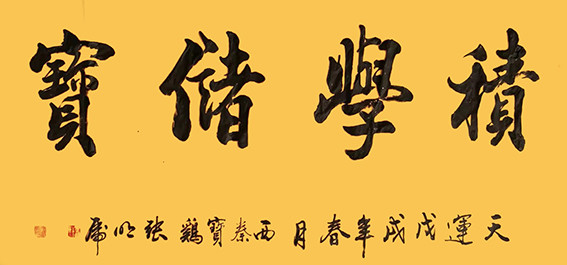 積學儲寶
天運戊戌年春月西秦寶鷄張明虎